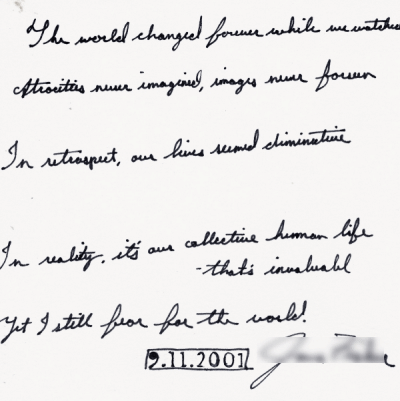 The world changed forever while we watched
Atrocities never imagined, images never forseen
In retrospect, our lives seemed diminutive
In reality, it's our collective human life
- that's invaluabl
Yet I still fear for the world!
9.11.2001